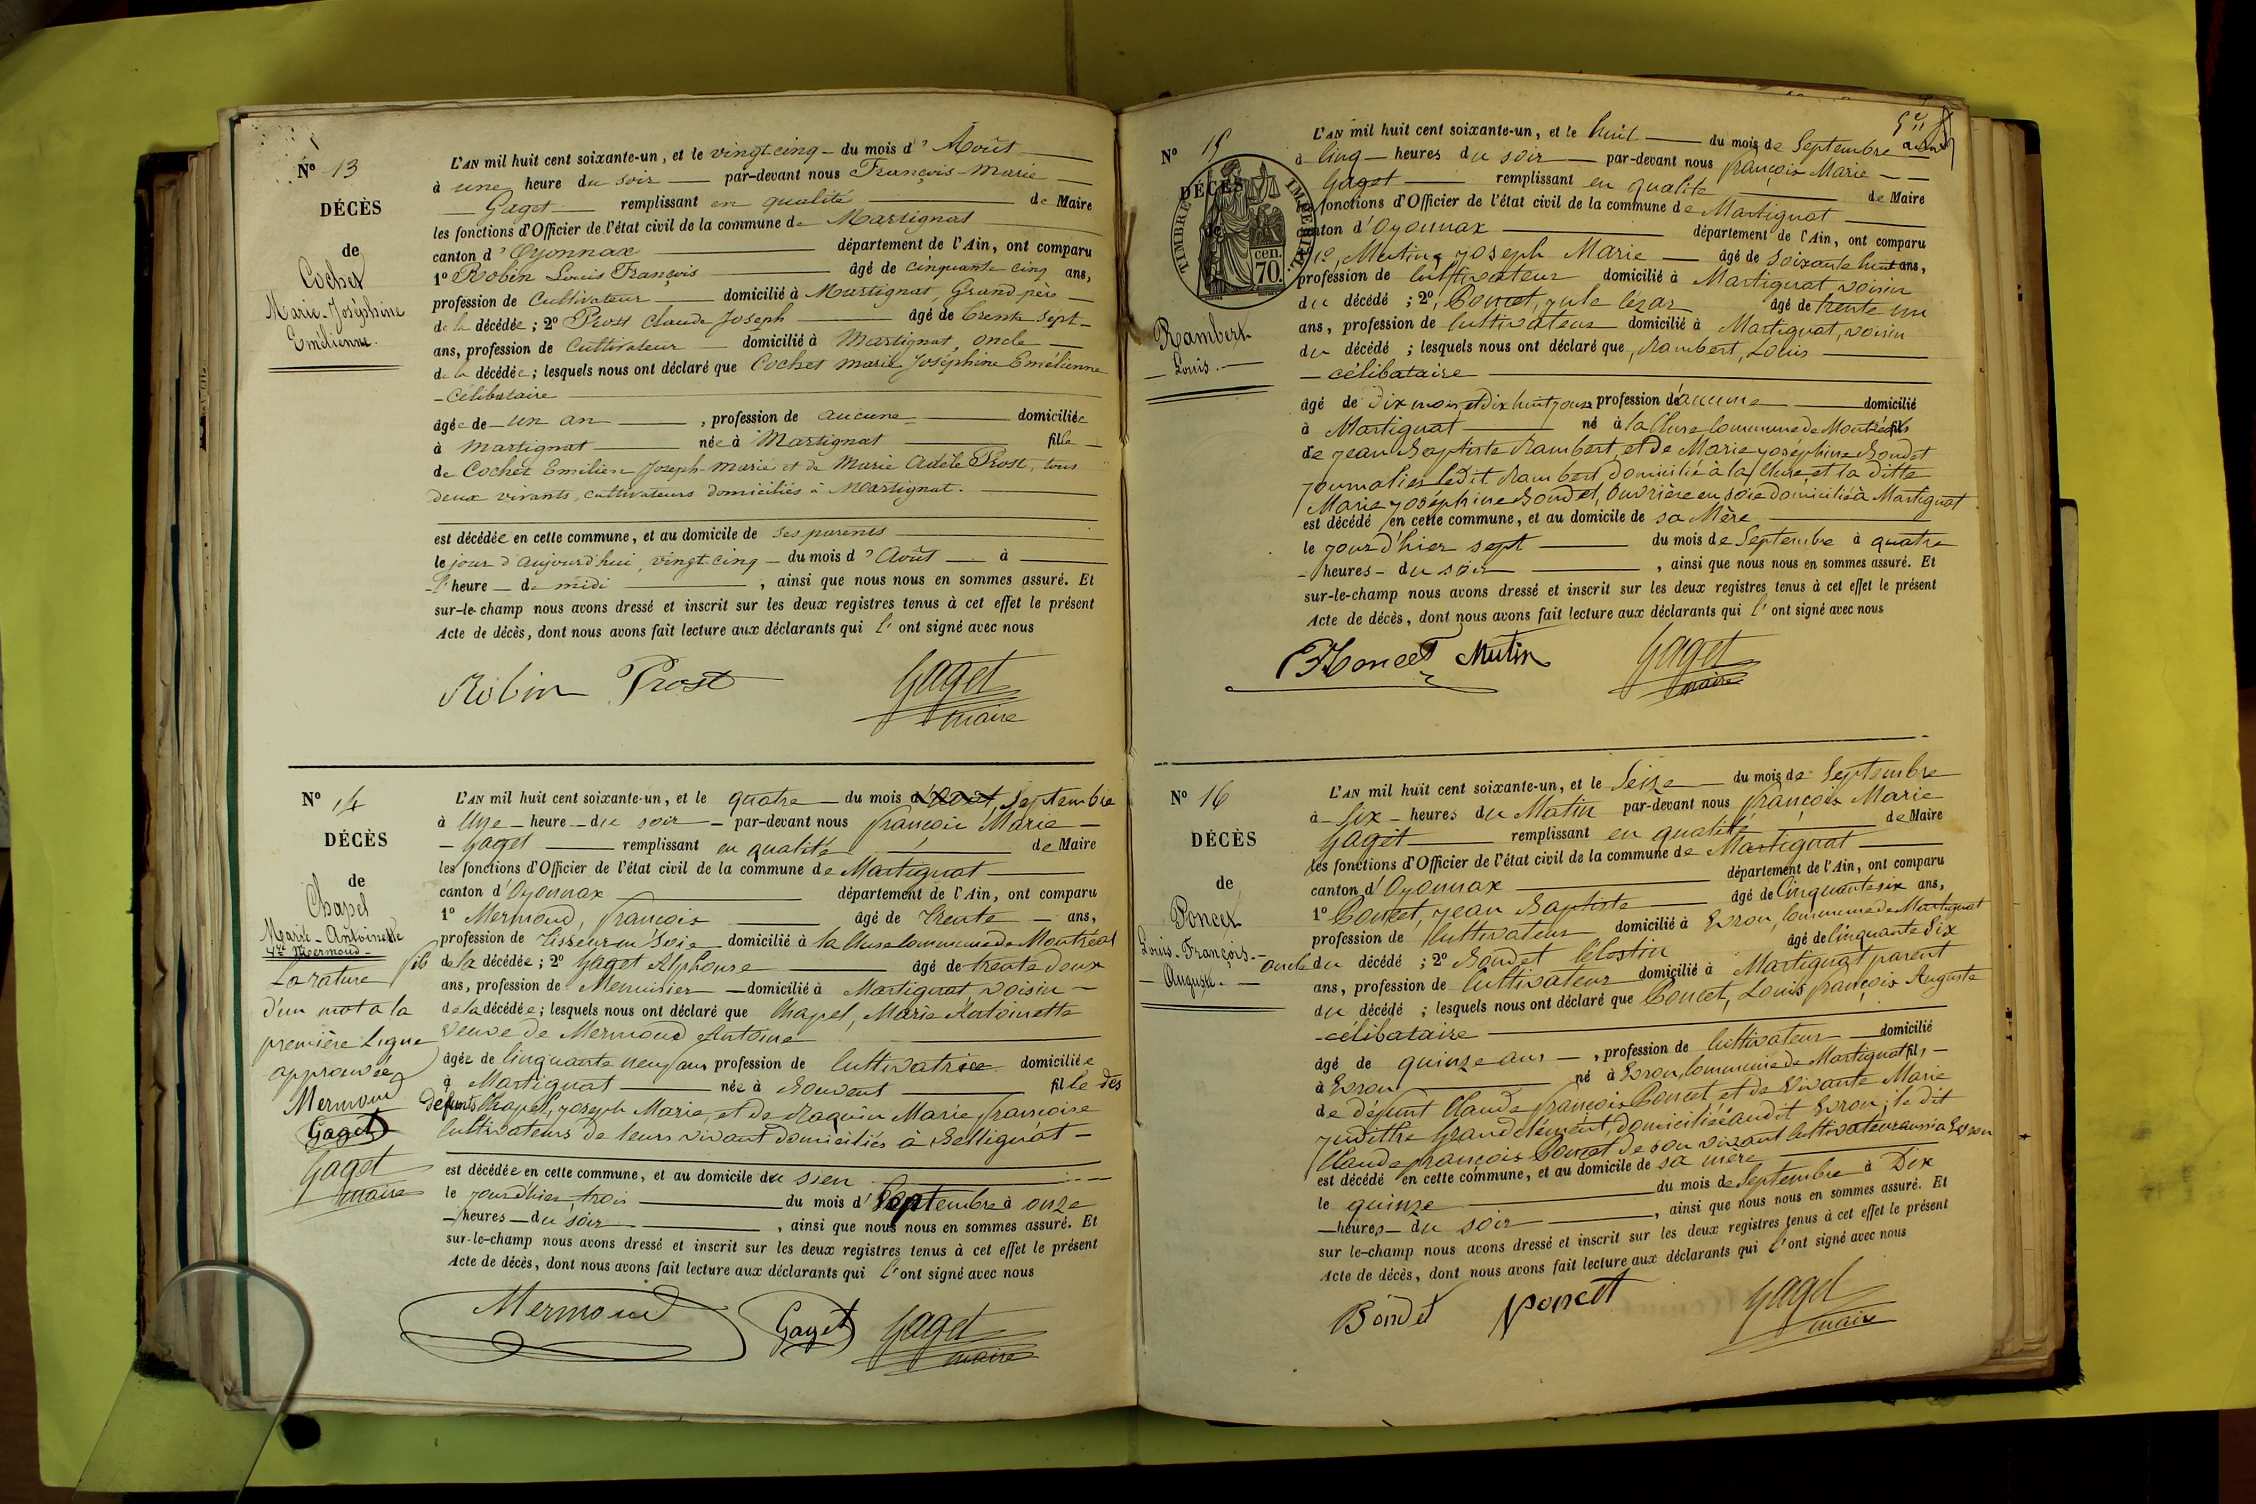 Nº 13
DÉCÈS
de
Cochet
Marie-Joséphine
Emélienne.
L'AN mil huit cent soixante-un, et le vingt cinq du mois d'Août
à une heure du soir par-devant nous François-Marie
Gaget remplissant en qualité de Maire
les fonctions d'Officier de l'état civil de la commune de Martignat
canton d'Oyonnax département de l'Ain, ont comparu
1º Robin Louis François âgé de cinquante cinq ans,
profession de Cultivateur domicilié à Martignat, Grand père
de la décédée ; 2º Prost Claude Joseph âgé de trente sept
ans, profession de Cultivateur domicilié à Martignat, oncle
de la décédée ; lesquels nous ont déclaré que Cochet marie Joséphine Emélienne
célibataire
âgée de un an , profession de aucune domiciliée
à Martignat née à Martignat fille
de Cochet Emilien Joseph-marie et de Marie Adèle Prost, tous
deux vivants, cultivateurs domiciliés à Martignat.
est décédée en cette commune, et au domicile de ses parents
le jour d'aujourd'hui, vingt cinq du mois d'Août à
l'heure de midi , ainsi que nous nous en sommes assuré. Et
sur-le-champ nous avons dressé et inscrit sur les deux registres tenus à cet effet le présent
Acte de décès, dont nous avons fait lecture aux déclarants qui l'ont signé avec nous
Robin Prost Gaget
maire
Nº 14
DÉCÈS
de
Chapel
Marie-Antoinette
Vve Mermoud
La rature
d'un mot a la
première ligne
approuvée
Mermoud
Gaget
Gaget
maire
L'AN mil huit cent soixante-un, et le quatre du mois d'Août, Septembre
à Une heure du soir par-devant nous françois Marie
Gaget remplissant en qualité de Maire
les fonctions d'Officier de l'état civil de la commune de Martignat
canton d'Oyonnax département de l'Ain, ont comparu
1º Mermoud, françois âgé de trente ans,
profession de Tisseur en Soie domicilié à la Cluse Commune de Montréal
fils de la décédée ; 2º Gaget Alphonse âgé de trente deux
ans, profession de Menuisier domicilié à Martignat voisin
de la décédée ; lesquels nous ont déclaré que Chapel, Marie Antoinette
veuve de Mermoud Antoine
âgée de Cinquante neuf ans profession de Cultivatrice domiciliée
à Martignat née à Bouvent fille des
défunts Chapel, Joseph Marie, et de Raquin Marie françoise
Cultivateurs de leurs vivant domiciliés à Bellignat
est décédée en cette commune, et au domicile du sien
le jour d'hier trois du mois d'Septembre à onze
heures du soir , ainsi que nous nous en sommes assuré. Et
sur-le-champ nous avons dressé et inscrit sur les deux registres tenus à cet effet le présent
Acte de décès, dont nous avons fait lecture aux déclarants qui l'ont signé avec nous
Mermoud Gaget Gaget
maire
Nº 15
DÉCÈS
de
TIMBRE IMPÉRIAL
70 cen.
Rambert
Louis.
L'AN mil huit cent soixante-un, et le huit du mois de Septembre
à Cinq heures du soir par-devant nous françois Marie
Gaget remplissant en qualité de Maire
les fonctions d'Officier de l'état civil de la commune de Martignat
canton d'Oyonnax département de l'Ain, ont comparu
1º, Mutin, Joseph Marie âgé de soixante huit ans,
profession de Cultivateur domicilié à Martignat voisin
du décédé ; 2º, Poncet, Jule Cezar âgé de trente un
ans, profession de Cultivateur domicilié à Martignat, voisin
du décédé ; lesquels nous ont déclaré que, Rambert, Louis
célibataire
âgé de Dix mois et Dix huit jours profession de aucune domicilié
à Martignat né à la Cluse Commune de Montréal fils
de Jean Baptiste Rambert, et de Marie Joséphine Bondet
Journalier ledit Rambert domicilié à la Cluse, et la ditte
Marie Joséphine Bondet, Ouvrière en soie domiciliée à Martignat
est décédé en cette commune, et au domicile de sa Mère
le jour d'hier sept du mois de Septembre à quatre
heures du soir , ainsi que nous nous en sommes assuré. Et
sur-le-champ nous avons dressé et inscrit sur les deux registres tenus à cet effet le présent
Acte de décès, dont nous avons fait lecture aux déclarants qui l'ont signé avec nous
Poncet Mutin Gaget
maire
Nº 16
DÉCÈS
de
Poncet
Louis-François-
Auguste.
L'AN mil huit cent soixante-un, et le Seize du mois de Septembre
à Six heures du Matin par-devant nous françois Marie
Gaget remplissant en qualité de Maire
les fonctions d'Officier de l'état civil de la commune de Martignat
canton d'Oyonnax département de l'Ain, ont comparu
1º Poncet, Jean Baptiste âgé de Cinquante six ans,
profession de Cultivateur domicilié à Evron, Commune de Martignat
oncle du décédé ; 2º Bondet Célestin âgé de Cinquante Six
ans, profession de Cultivateur domicilié à Martignat parent
du décédé ; lesquels nous ont déclaré que Poncet, Louis françois Auguste
célibataire
âgé de quinze ans , profession de Cultivateur domicilié
à Evron né à Evron, Commune de Martignat fils
de défunt Claude françois Poncet et de Vivante Marie
Judithe Grandclément, domiciliée audit Evron ; le dit
Claude françois Poncet de son vivant Cultivateur aussi à Evron
est décédé en cette commune, et au domicile de sa mère
le quinze du mois de Septembre à Dix
heures du soir , ainsi que nous nous en sommes assuré. Et
sur le-champ nous avons dressé et inscrit sur les deux registres tenus à cet effet le présent
Acte de décès, dont nous avons fait lecture aux déclarants qui l'ont signé avec nous
Bondet Poncet Gaget
maire